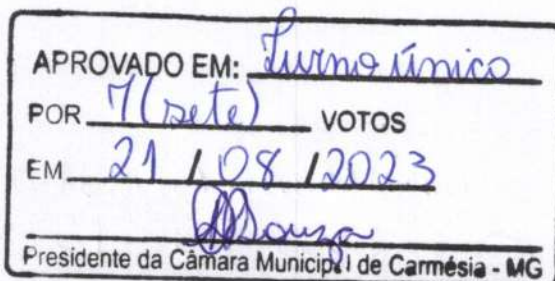 APROVADO EM: Turno único
POR 7 (sete) VOTOS
EM 21 / 08 / 2023
Souza
Presidente da Câmara Municipal de Carmésia - MG